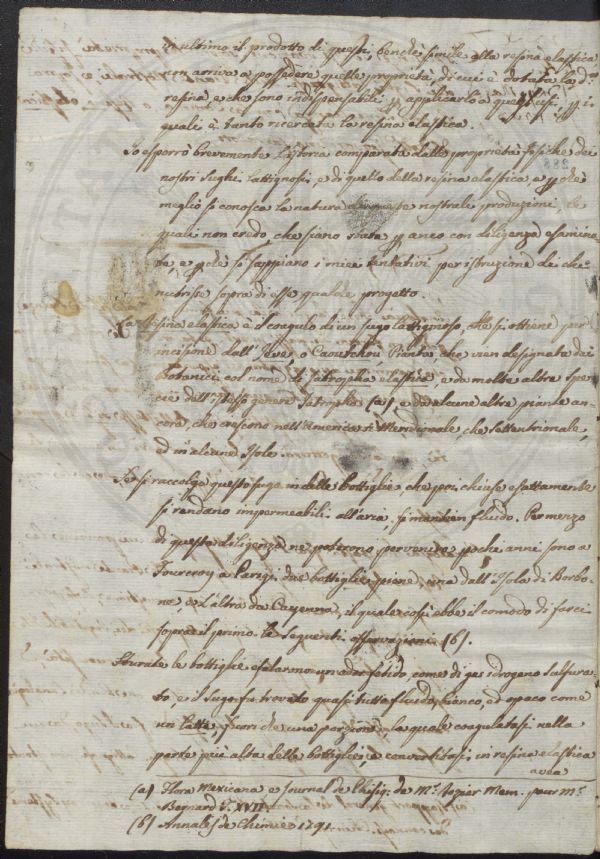 in ultimo il prodotto di questi, benchè simile alla resina elastica
non arriva a possedere quelle proprietà, di cui è dotata la d.a
resina, e che sono indispensabili p applicarlo a quegli usi, p i
quali è tanto ricercata la resina elastica.
Io esporrò brevemente l'istoria comparata delle proprietà fisiche dei
nostri sughi lattiginosi, e di quello della resina elastica, e p chè
meglio si conosca la natura di queste nostrali produzioni, le
quali non credo, che siano state p anco con diligenza esamina
te, e p chè si sappiano i miei tentativi per istruzione di chi
nutrisse sopra di esse qualche progetto.
La resina elastica è il coagulo di un sugo lattiginoso, che si ottiene per
incisione dall'Jeve, o Caoutchou, Pianta che vien designata dai
Botanici col nome di Jatropha elastica, e da molte altre spe
cie dell'istesso genere Jatropha (a) e da alcune altre piante an
cora, che crescono nell'America sì Meridionale, che Settentrionale,
ed in alcune Isole.
Se si raccolga questo sugo in delle bottiglie, che poi chiuse esattamente
si rendano impermeabili all'aria, si mantien fluido. Per mezzo
di questa diligenza ne poterono pervenire pochi anni sono a
Fourcroy a Parigi due bottiglie piene, una dall'Isola di Borbo
ne, e l'altra da Cayenna, il quale così ebbe il comodo di farci
sopra il primo le seguenti osservazioni (b).
Sturate le bottiglie esalarono un odor fetido, come di gas idrogeno solfura
to, e il sugo fu trovato quasi tutto fluido, bianco, ed opaco come
un latte, fuori che una porzione, la quale coagulatasi nella
parte più alta delle bottiglie e convertitasi in resina elastica
avea
(a) Flora Mexicana e Journal de Phisiq. de Mr. Rozier Mem. pour Mr.
Begnard T. XVII
(b) Annales de Chimie 1791